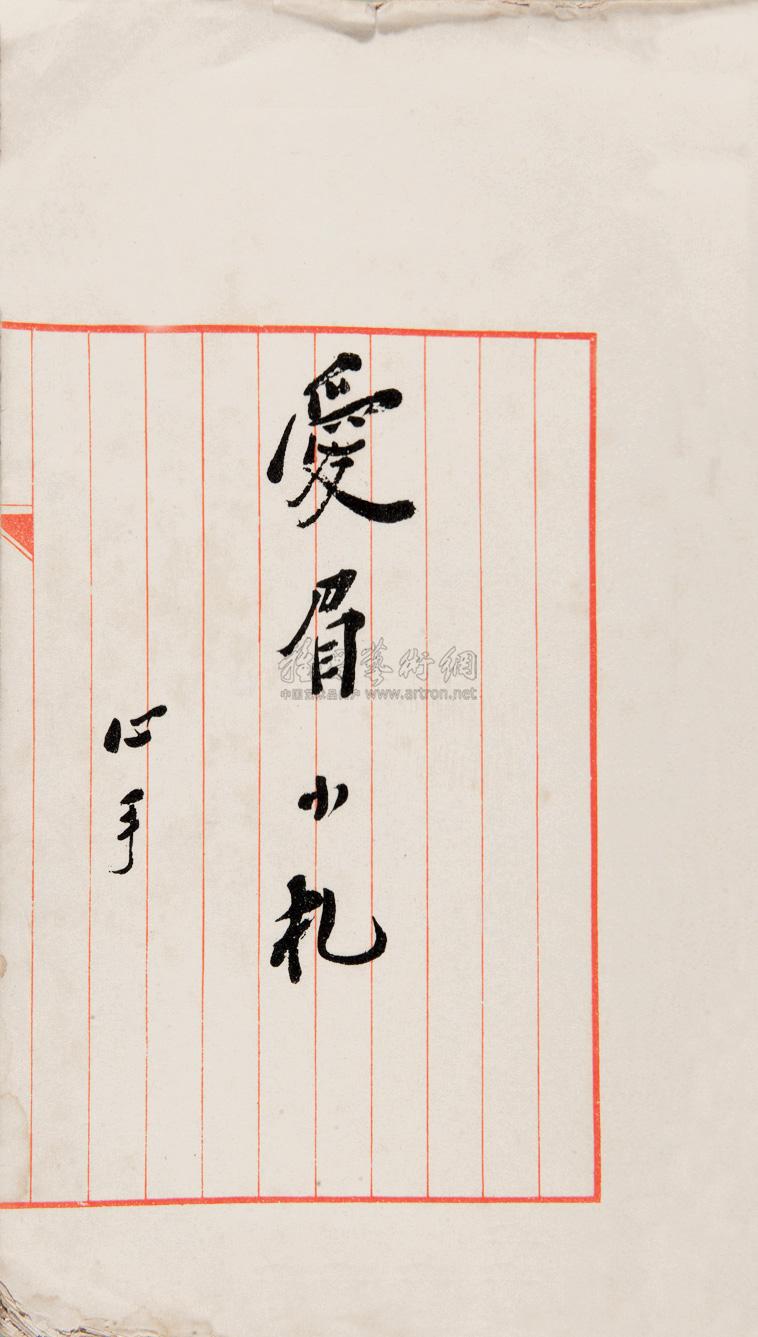 愛眉小札
心手
雅昌藝術網
中国艺术品门户 www.artron.net